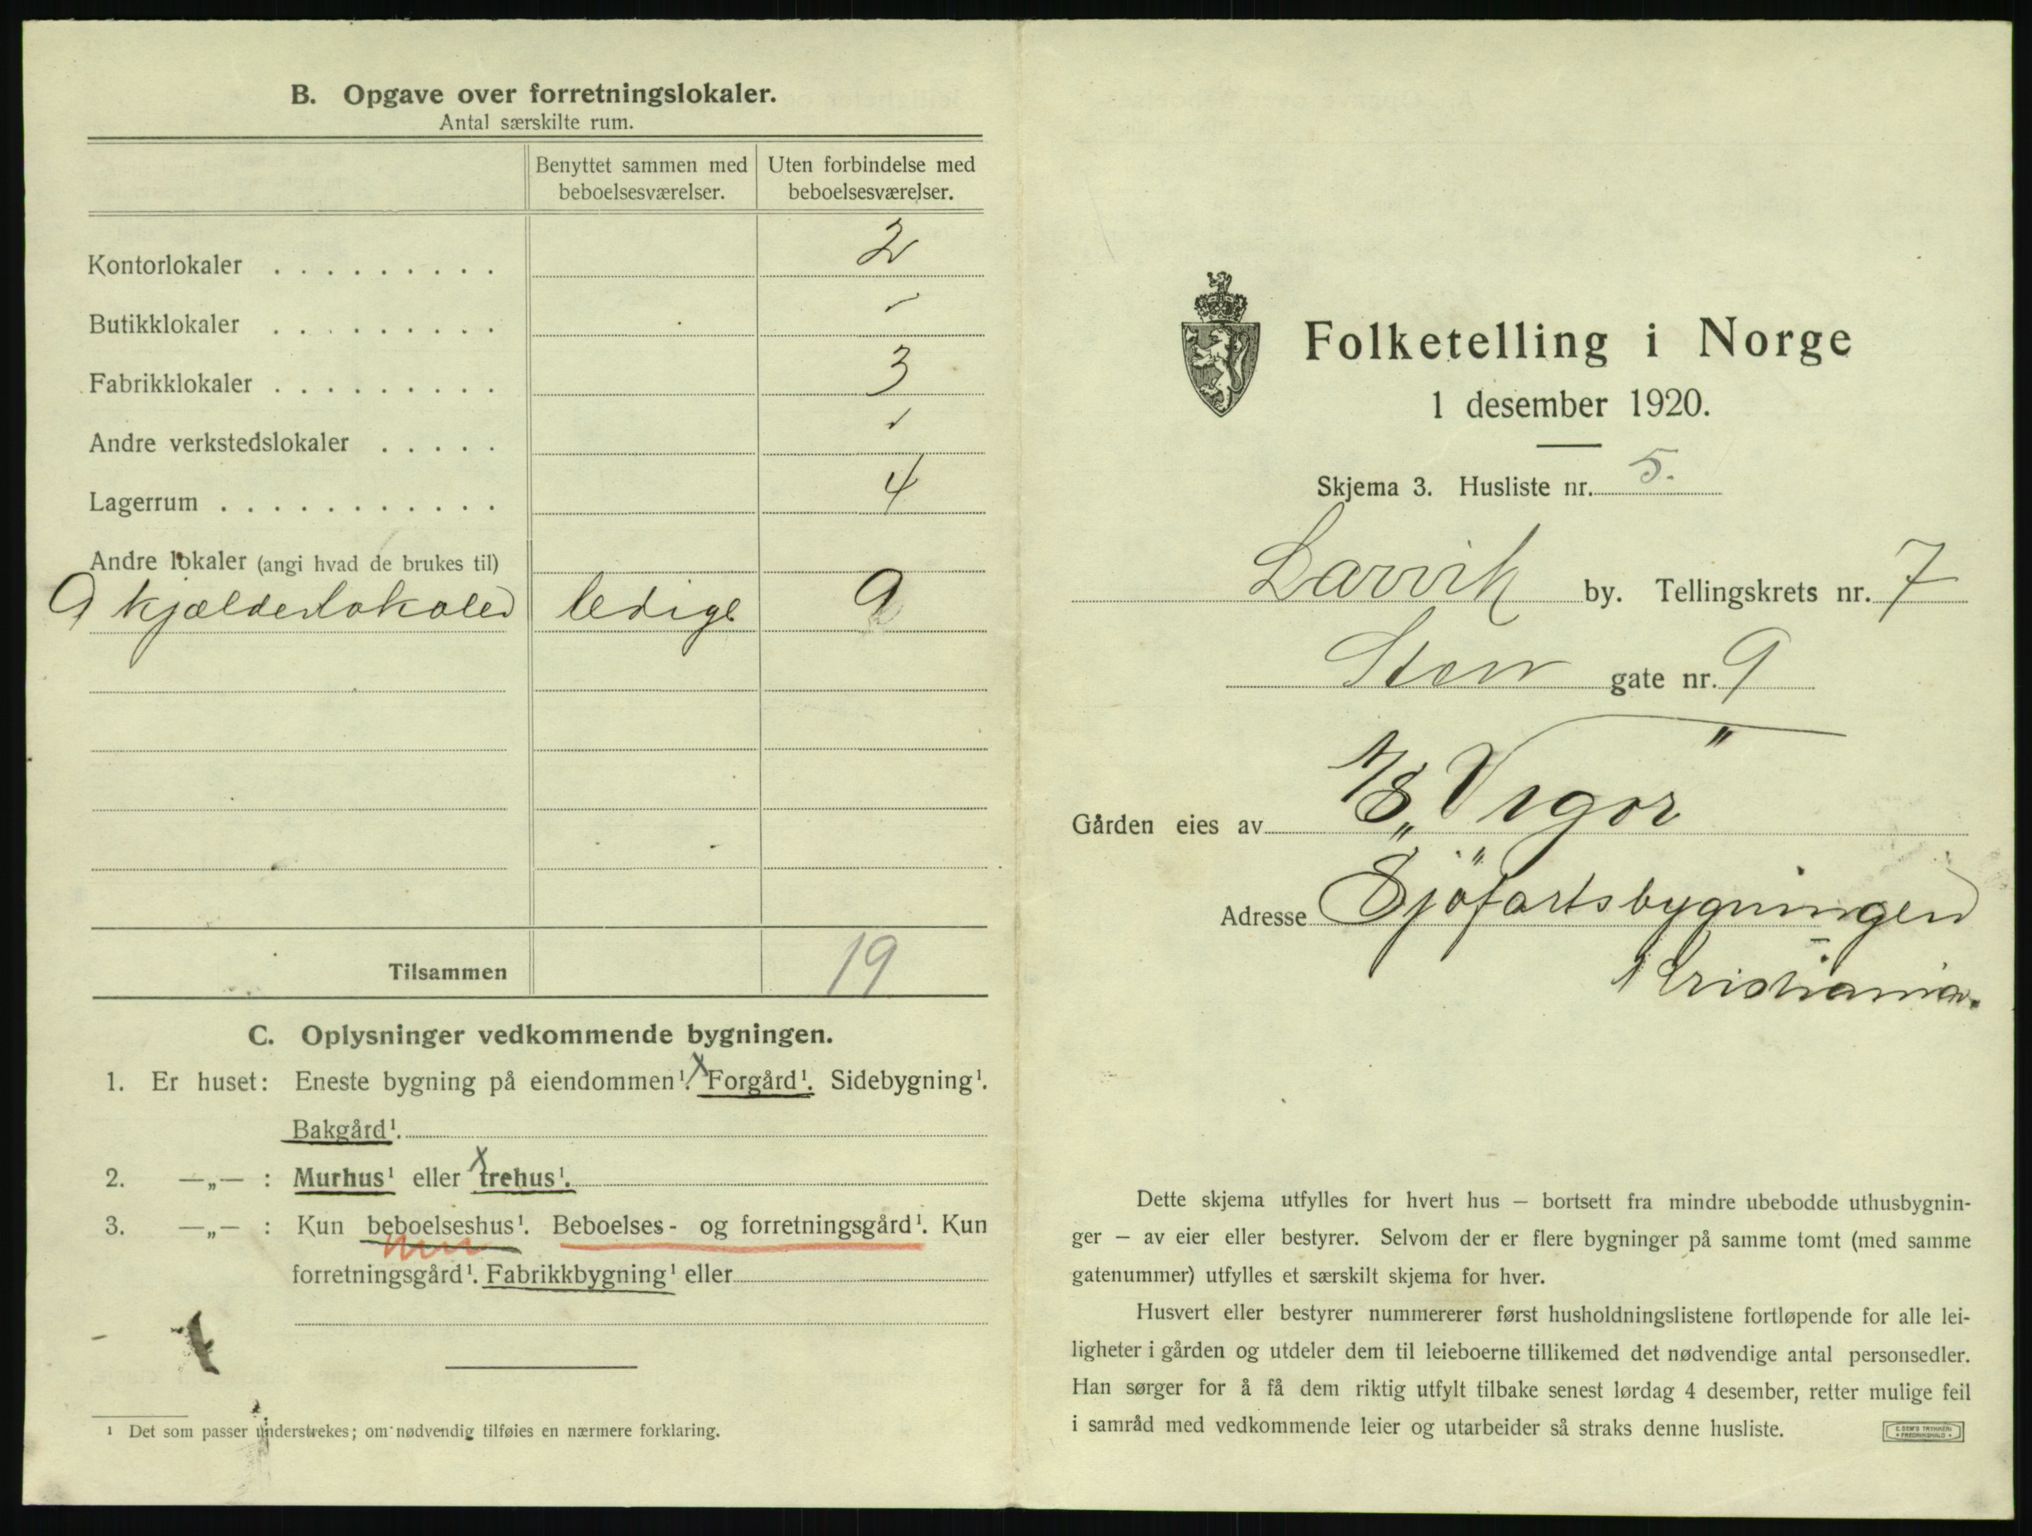 B. Opgave over forretningslokaler.
Antal særskilte rum.
Benyttet sammen med beboelsesværelser.
Uten forbindelse med beboelsesværelser.
Kontorlokaler . . . . . . . . . 2
Butikklokaler . . . . . . . . .
Fabrikklokaler . . . . . . . . . 3
Andre verkstedslokaler . . . . .
Lagerrum . . . . . . . . . . . 4
Andre lokaler (angi hvad de brukes til)
9 kjælderlokaler ledige 9
Tilsammen 19
C. Oplysninger vedkommende bygningen.
1. Er huset: Eneste bygning på eiendommen¹. x Forgård¹. Sidebygning¹.
Bakgård¹.
2. —„— : Murhus¹ eller x trehus¹.
3. —„— : Kun beboelseshus¹. Beboelses- og forretningsgård¹. Kun
forretningsgård¹. Fabrikkbygning¹ eller
¹ Det som passer understrekes; om nødvendig tilføies en nærmere forklaring.
Folketelling i Norge
1 desember 1920.
Skjema 3. Husliste nr. 5.
Larvik by. Tellingskrets nr. 7
Stor gate nr. 9
Gården eies av A/S „Vigor"
Adresse Sjöfartsbygningen
Kristiania.
Dette skjema utfylles for hvert hus – bortsett fra mindre ubebodde uthusbygnin-
ger – av eier eller bestyrer. Selvom der er flere bygninger på samme tomt (med samme
gatenummer) utfylles et særskilt skjema for hver.
Husvert eller bestyrer nummererer først husholdningslistene fortløpende for alle lei-
ligheter i gården og utdeler dem til leieboerne tillikemed det nødvendige antal personsedler.
Han sørger for å få dem riktig utfylt tilbake senest lørdag 4 desember, retter mulige feil
i samråd med vedkommende leier og utarbeider så straks denne husliste.